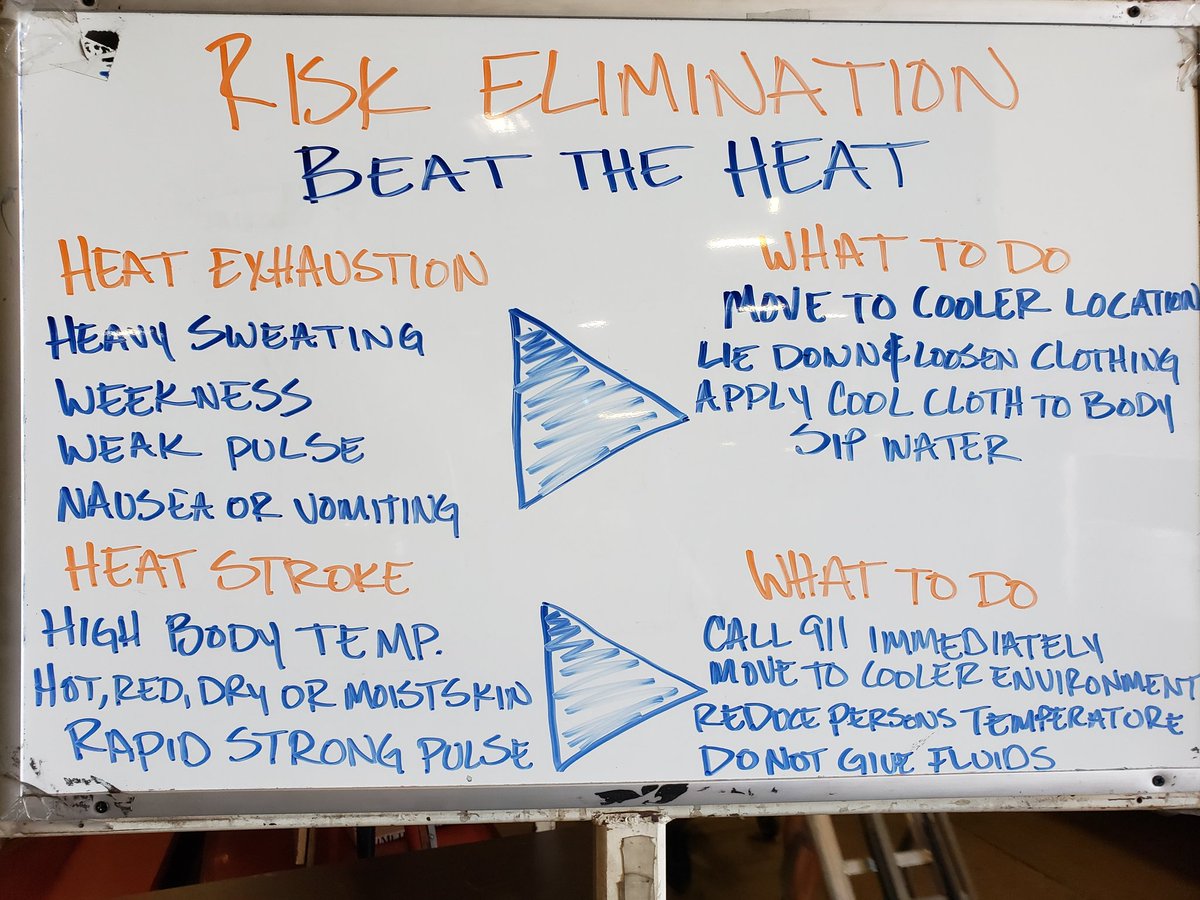 RISK ELIMINATION
BEAT THE HEAT
HEAT EXHAUSTION
HEAVY SWEATING
WEEKNESS
WEAK PULSE
NAUSEA OR VOMITING
WHAT TO DO
MOVE TO COOLER LOCATION
LIE DOWN & LOOSEN CLOTHING
APPLY COOL CLOTH TO BODY
SIP WATER
HEAT STROKE
HIGH BODY TEMP.
HOT, RED, DRY OR MOIST SKIN
RAPID STRONG PULSE
WHAT TO DO
CALL 911 IMMEDIATELY
MOVE TO COOLER ENVIRONMENT
REDUCE PERSONS TEMPERATURE
DO NOT GIVE FLUIDS